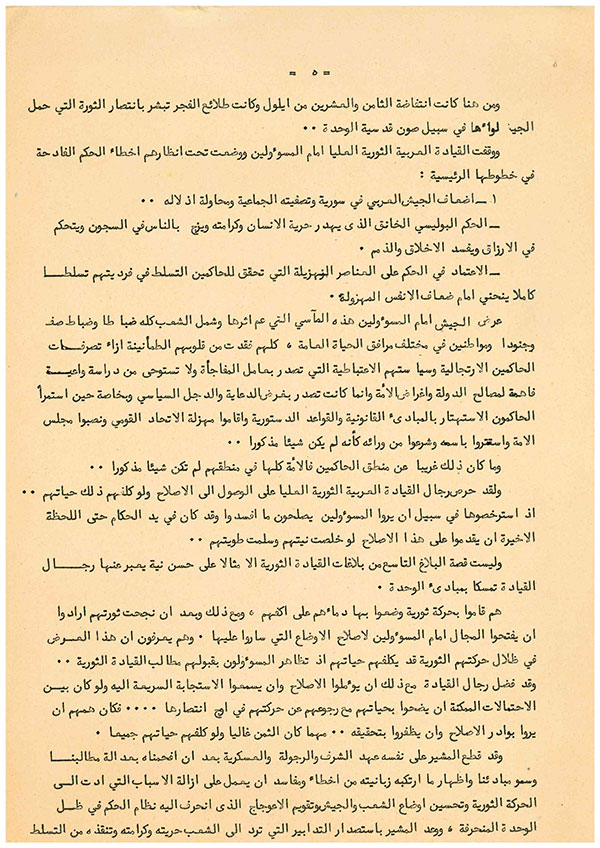 = ٥ =
ومن هنا كانت انتفاضة الثامن والعشرين من ايلول وكانت طلائع الفجر تبشر بانتصار الثورة التي حمل
الجيش لواءها في سبيل صون قدسية الوحدة ٠٠
ووقفت القيادة العربية الثورية العليا امام المسوءولين ووضعت تحت انظارهم اخطاء الحكم الفادحة
في خطوطها الرئيسية :
١ ــ اضعاف الجيش العربي في سورية وتصفيته الجماعية ومحاولة اذلاله ٠٠
ــ الحكم البوليسي الخانق الذى يهدر حرية الانسان وكرامته ويزج بالناس في السجون ويتحكم
في الارزاق ويفسد الاخلاق والذمم ٠
ــ الاعتماد في الحكم على العناصر الهزيلة التي تحقق للحاكمين التسلط في فرديتهم تسلطـــا
كاملا ينحني امام ضعاف الانفس المهزولة ٠
عرض الجيش امام المسوءولين هذه المآسي التي عم اثرها وشمل الشعب كله ضباطا وضباط صف
وجنودا ومواطنين في مختلف مرافق الحياة العامة ، كلهم فقدت من قلوبهم الطمأنينة ازاء تصرفـــات
الحاكمين الارتجالية وسياستهم الاعتباطية التي تصدر بعامل المفاجأة ولا تستوحى من دراسة واعيــة
فاهمة لمصالح الدولة واغراض الأمة وانما كانت تصدر بغرض الدعاية والدجل السياسي وبخاصة حين استمرأ
الحاكمون الاستهتار بالمبادىء القانونية والقواعد الدستورية واقاموا مهزلة الاتحاد القومي ونصبوا مجلس
الامة واستتروا باسمه وشرعوا من ورائه كأنه لم يكن شيئا مذكورا ٠٠
وما كان ذلك غريبا عن منطق الحاكمين فالأمة كلها في منطقهم لم تكن شيئا مذكورا ٠٠
ولقد حرص رجال القيادة العربية الثورية العليا على الوصول الى الاصلاح ولو كلفهم ذلك حياتهم ٠٠
اذ استرخصوها في سبيل ان يروا المسوءولين يصلحون ما افسدوا وقد كان في يد الحكام حتى اللحظة
الاخيرة ان يقدموا على هذا الاصلاح لو خلصت نيتهم وسلمت طويتهم ٠٠
وليست قصة البلاغ التاسع من بلاغات القيادة الثورية الا مثالا على حسن نية يعبر عنها رجــال
القيادة تمسكا بمبادىء الوحدة ٠
هم قاموا بحركة ثورية وضعوا بها دماءهم على اكفهم ، ومع ذلك وبعد ان نجحت ثورتهم ارادوا
ان يفتحوا المجال امام المسوءولين لاصلاح الاوضاع التي ساروا عليها ٠ وهم يعرفون ان هذا العــرض
في ظلال حركتهم الثورية قد يكلفهم حياتهم اذ تظاهر المسوءولون بقبولهم مطالب القيادة الثورية ٠٠
وقد فضل رجال القيادة مع ذلك ان يوءملوا الاصلاح وان يسمعوا الاستجابة السريعة اليه ولو كان بيــن
الاحتمالات الممكنة ان يضحوا بحياتهم مع رجوعهم عن حركتهم في اوج انتصارها ٠٠٠٠ فكان همهم ان
يروا بوادر الاصلاح وان يظفروا بتحقيقه ٠٠ مهما كان الثمن غاليا ولو كلفهم حياتهم جميعا ٠
وقد قطع المشير على نفسه عهد الشرف والرجولة والعسكرية بعد ان افحمناه بعدالة مطالبنـــا
وسمو مبادئنا واظهار ما ارتكبه زبانيته من اخطاء ومفاسد ان يعمل على ازالة الاسباب التي ادت الــى
الحركة الثورية وتحسين اوضاع الشعب والجيش وتقويم الاعوجاج الذى انحرف اليه نظام الحكم في ظــل
الوحدة المنحرفة ، ووعد المشير باستصدار التدابير التي ترد الى الشعب حريته وكرامته وتنقذه من التسلط